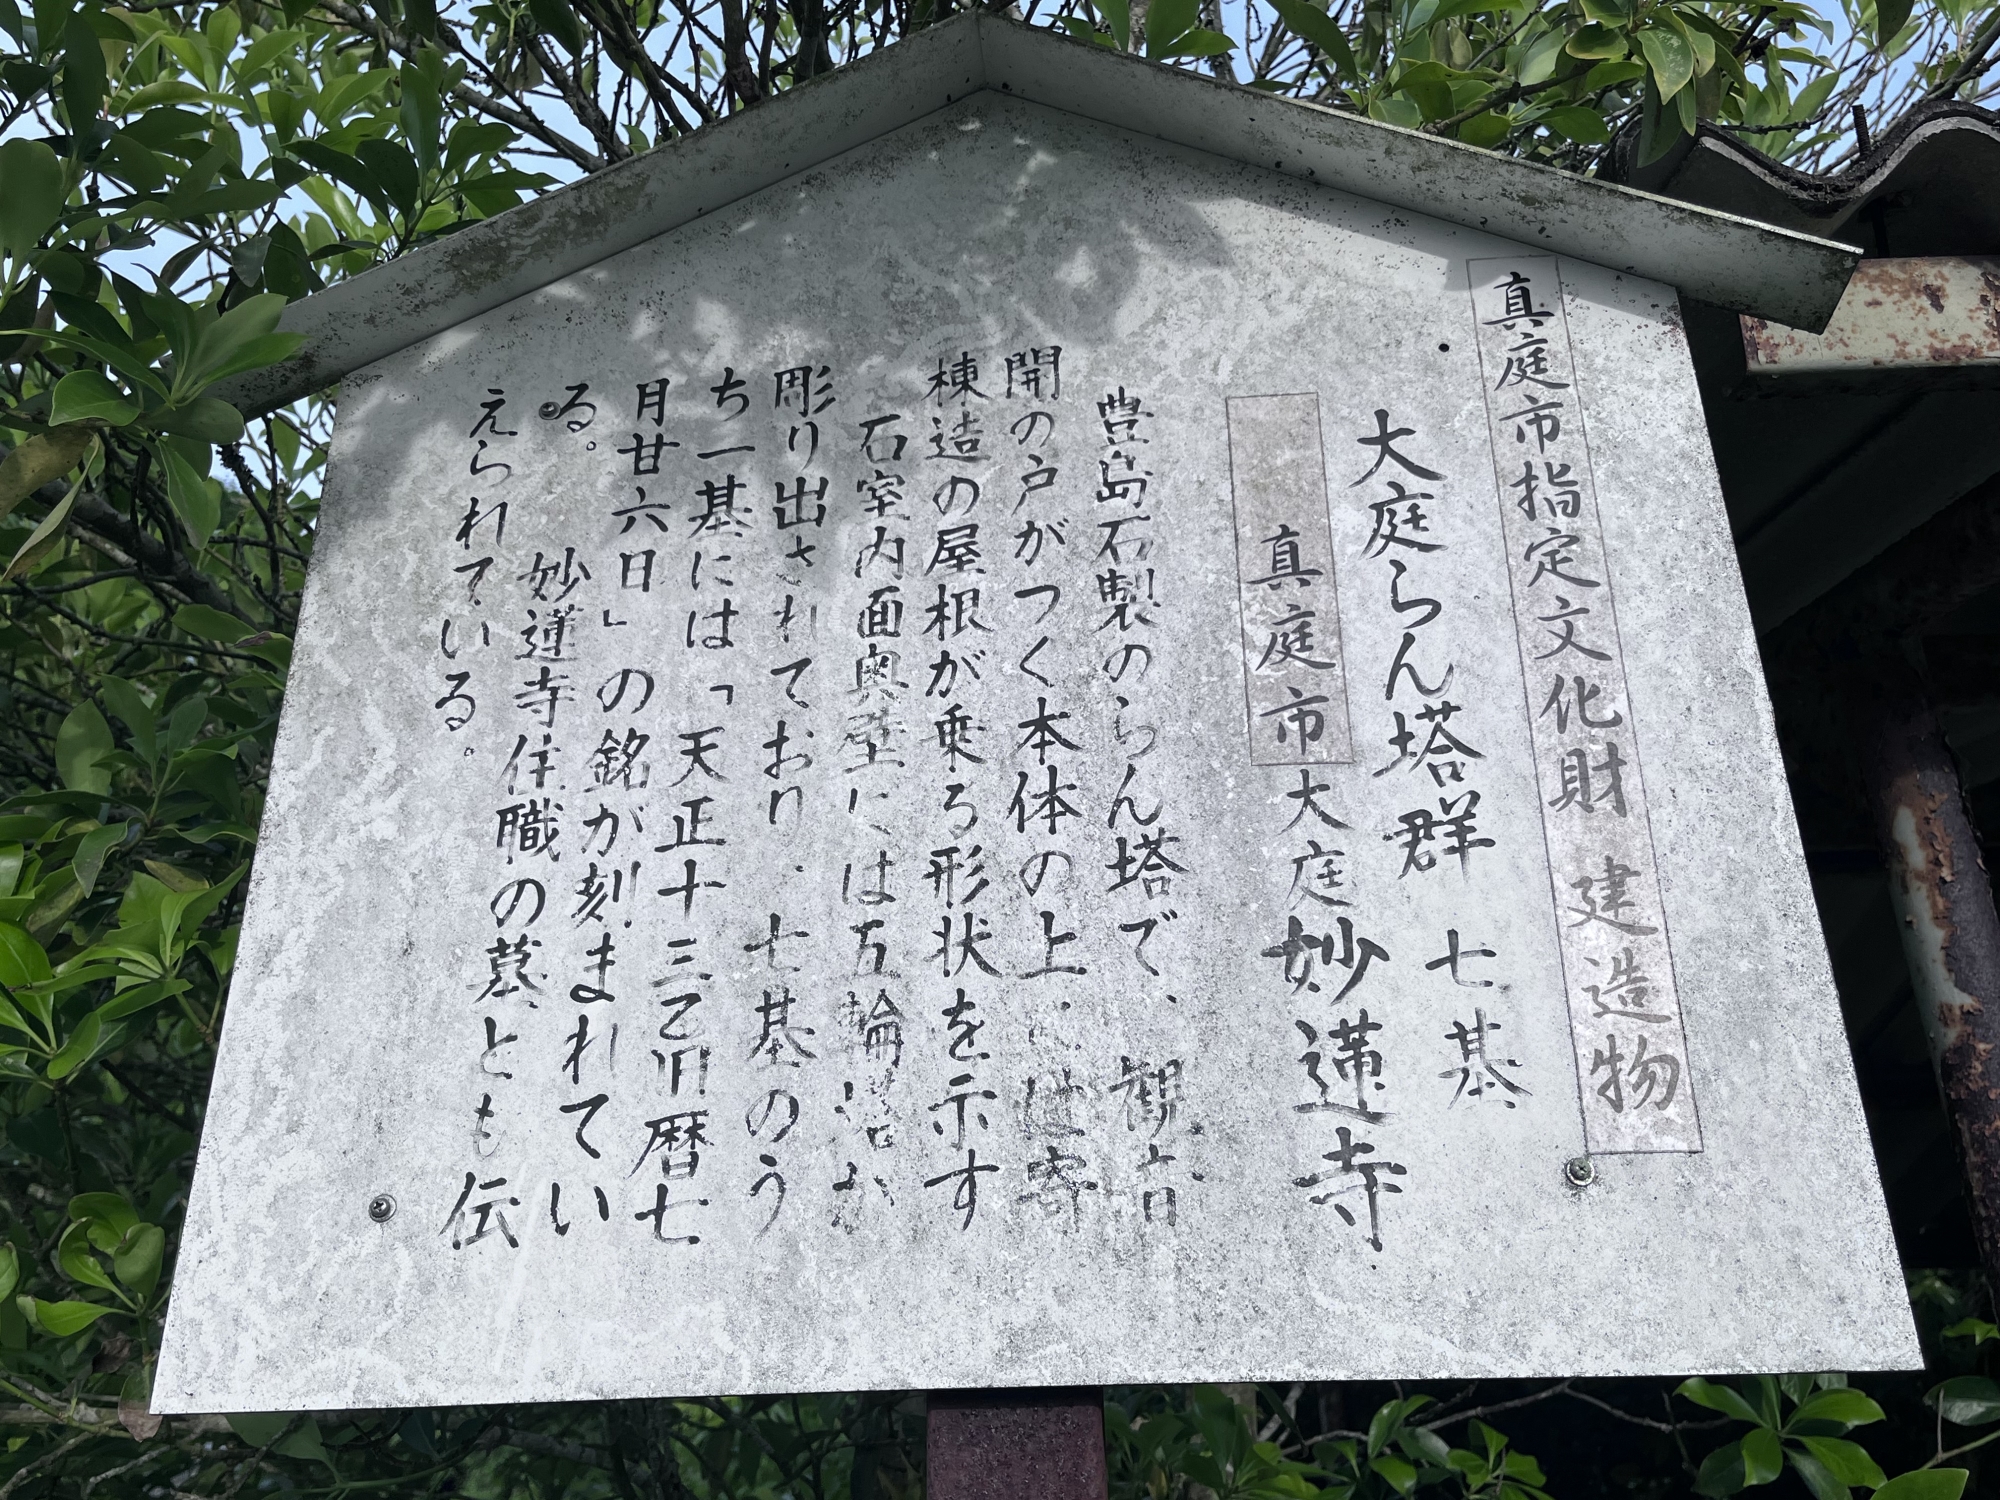 真庭市指定文化財 建造物
大庭らん塔群 七基
真庭市大庭妙蓮寺
豊島石製のらん塔で、観音
開の戸がつく本体の上には寄
棟造の屋根が乗る形状を示す
石室内面奥壁には五輪塔が
彫り出されており、七基のう
ち一基には「天正十三乙旧暦七
月廿六日」の銘が刻まれてい
る。 妙蓮寺住職の墓とも伝
えられている。